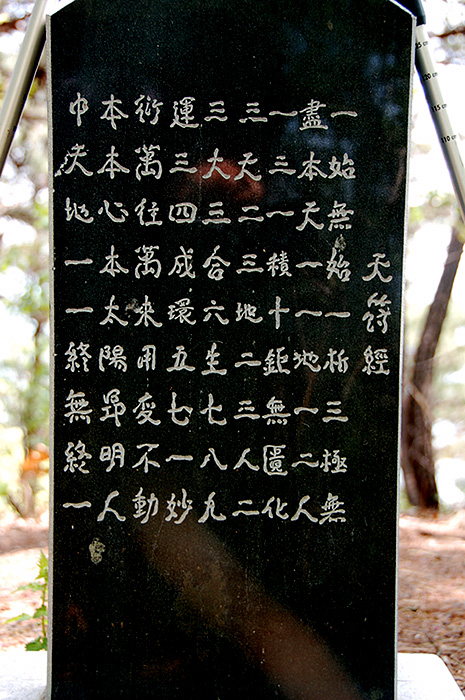 天符經
一始無始一析三極無
盡本天一一地一二人
一三一積十鉅無匱化
三天二三地二三人二
三大三合六生七八九
運三四成環五七一妙
衍萬往萬來用變不動
本本心本太陽昻明人
中天地一一終無終一
120 cm
115 cm
110 cm